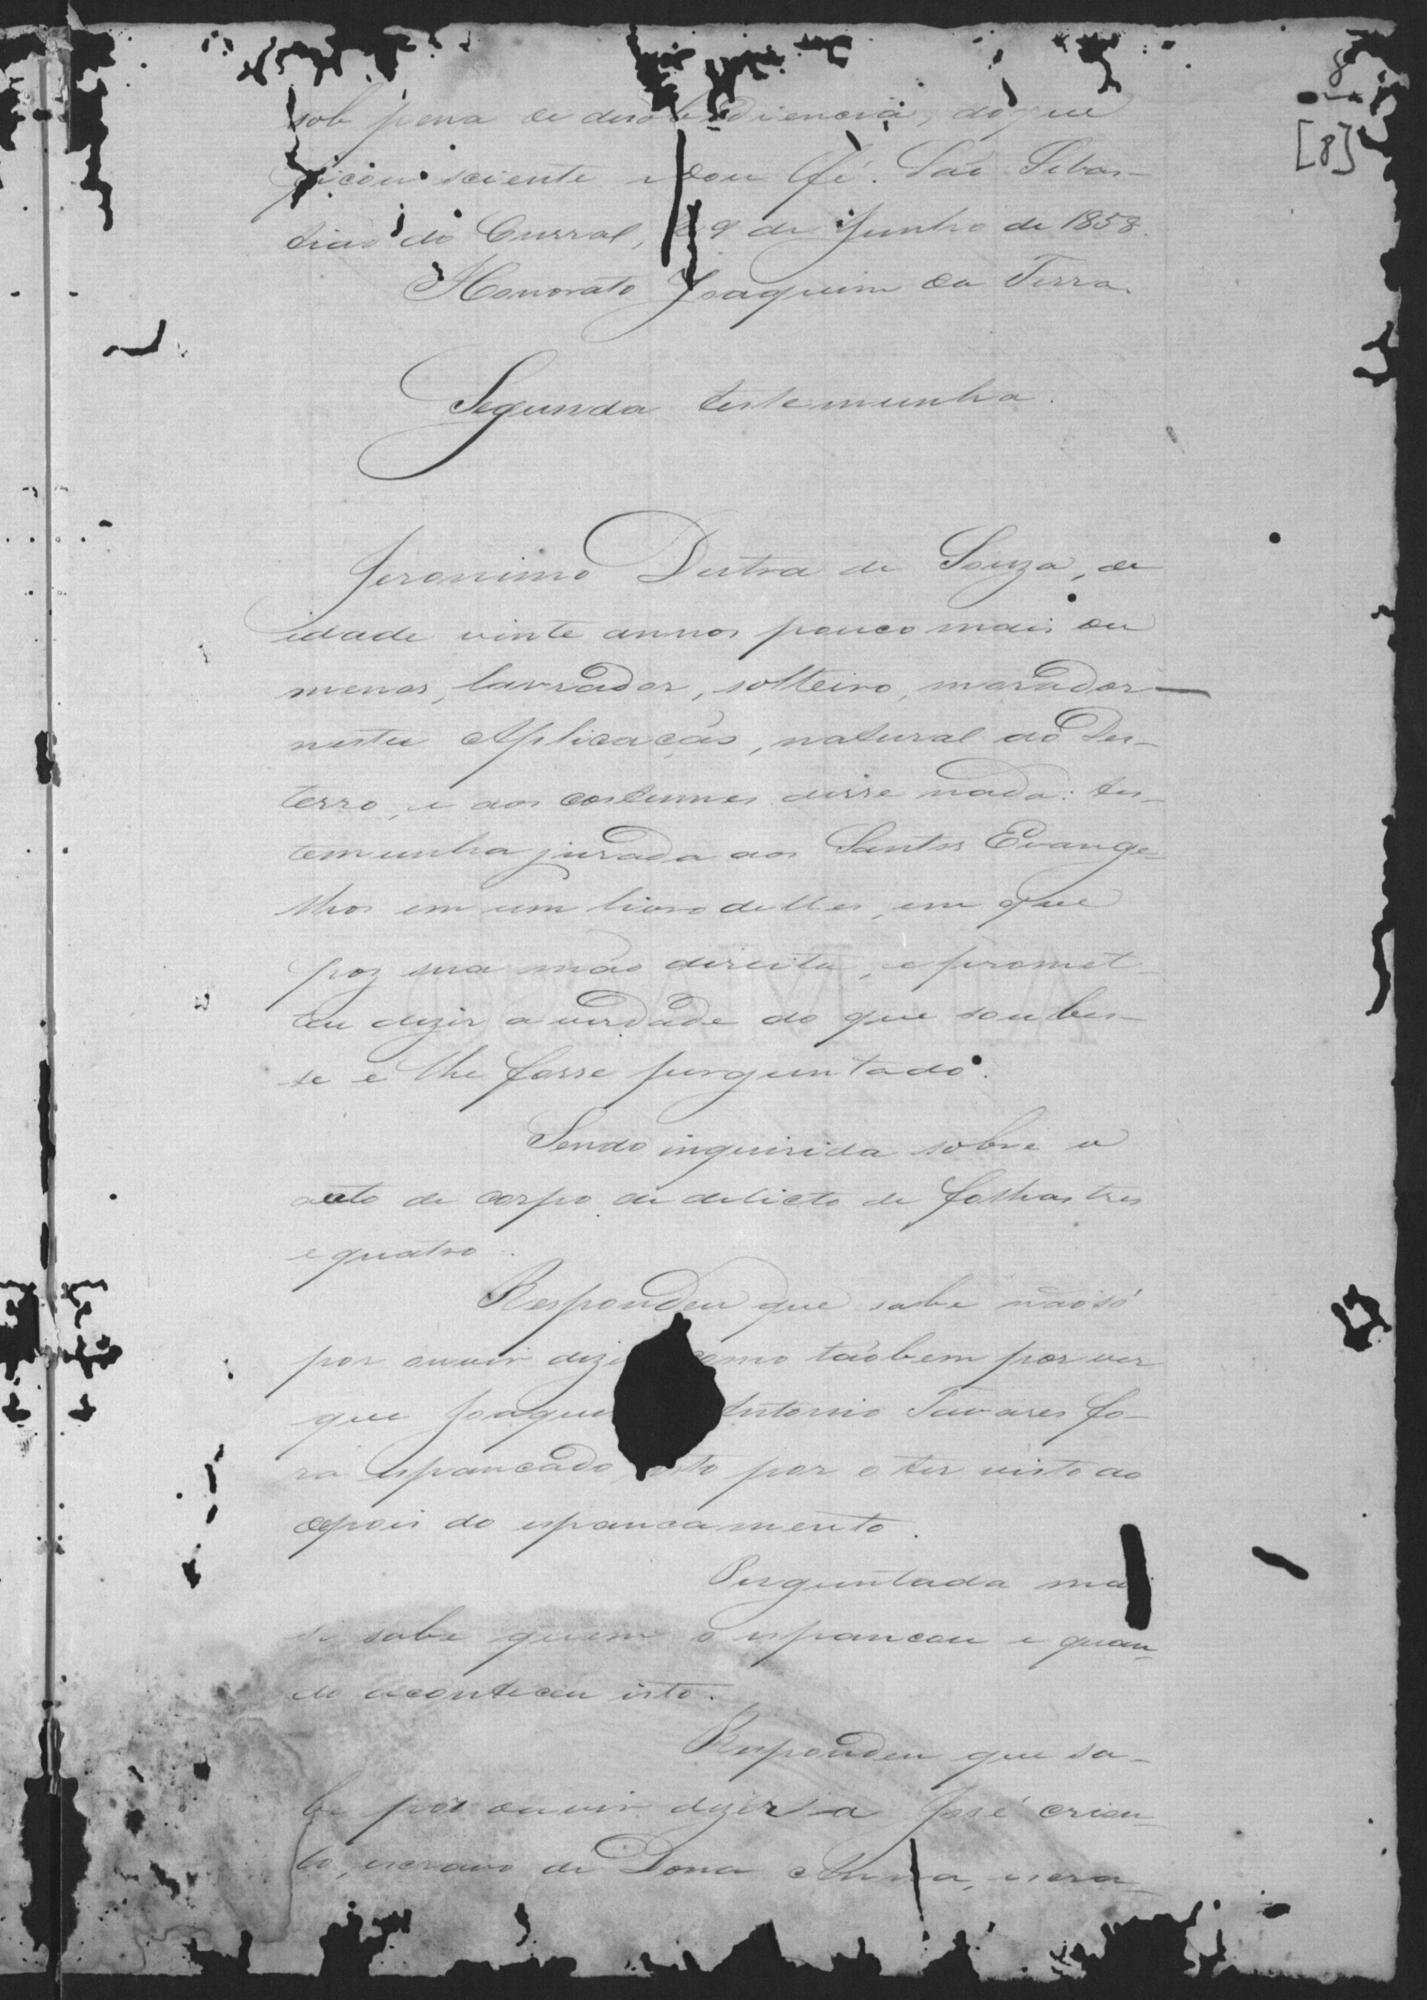 8
[8]
sob pena de desobediencia, do que
ficou sciente e dou fé. São Sebas-
tião do Curral, 29 de Junho de 1858.
Honorato Joaquim da Terra.
Segunda testemunha.
Jeronimo Dutra de Souza, de
idade vinte annos pouco mais ou
menos, lavrador, solteiro, morador
nesta Aplicação, natural do Des-
terro, e aos costumes disse nada: tes-
temunha jurada aos Santos Evange-
lhos em um livro delles, em que
poz sua mão direita, e promet
teu dizer a verdade do que soubes-
se e lhe fosse perguntado.
Sendo inquirida sobre o
auto de corpo de delicto de folhas tres
e quatro.
Respondeu que sabe não só
por ouvir dizer como taobem por ver
que Joaquim Antonio Tavares fo-
ra espancado, isto por o ter visto ao
depois do espancamento.
Perguntada mais
se sabe quem o espancou e quan-
do aconteceu isto.
Respondeu que sa-
be por ouvir dizer a José criou-
lo, escravo de Dona Anna, escra-